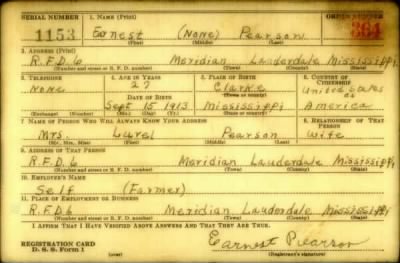 SERIAL NUMBER 1. NAME (Print) ORDER NUMBER
1153 Earnest (None) Pearson 361
(First) (Middle) (Last)
3. ADDRESS (Print)
R.F.D. 6 Meridian Lauderdale Mississippi
(Number and street or R. F. D. number) (Town) (County) (State)
3. TELEPHONE 4. AGE IN YEARS 5. PLACE OF BIRTH 6. COUNTRY OF CITIZENSHIP
None 27 Clarke United States
DATE OF BIRTH (Town or county) of
Sept 15 1913 Mississippi America
(Mo.) (Day) (Yr.) (State or country)
7. NAME OF PERSON WHO WILL ALWAYS KNOW YOUR ADDRESS 8. RELATIONSHIP OF THAT PERSON
Mrs. Pearson wife
(Mr., Mrs., Miss) (First) (Middle) (Last)
9. ADDRESS OF THAT PERSON
R.F.D. 6 Meridian Lauderdale Mississippi
(Number and street or R. F. D. number) (Town) (County) (State)
10. EMPLOYER'S NAME
Self (Farmer)
11. PLACE OF EMPLOYMENT OR BUSINESS
R.F.D. 6 Meridian Lauderdale Mississippi
(Number and street or R. F. D. number) (Town) (County) (State)
I AFFIRM THAT I HAVE VERIFIED ABOVE ANSWERS AND THAT THEY ARE TRUE.
REGISTRATION CARD
D. S. S. Form 1 (over) Earnest Pearson
(Registrant's signature)